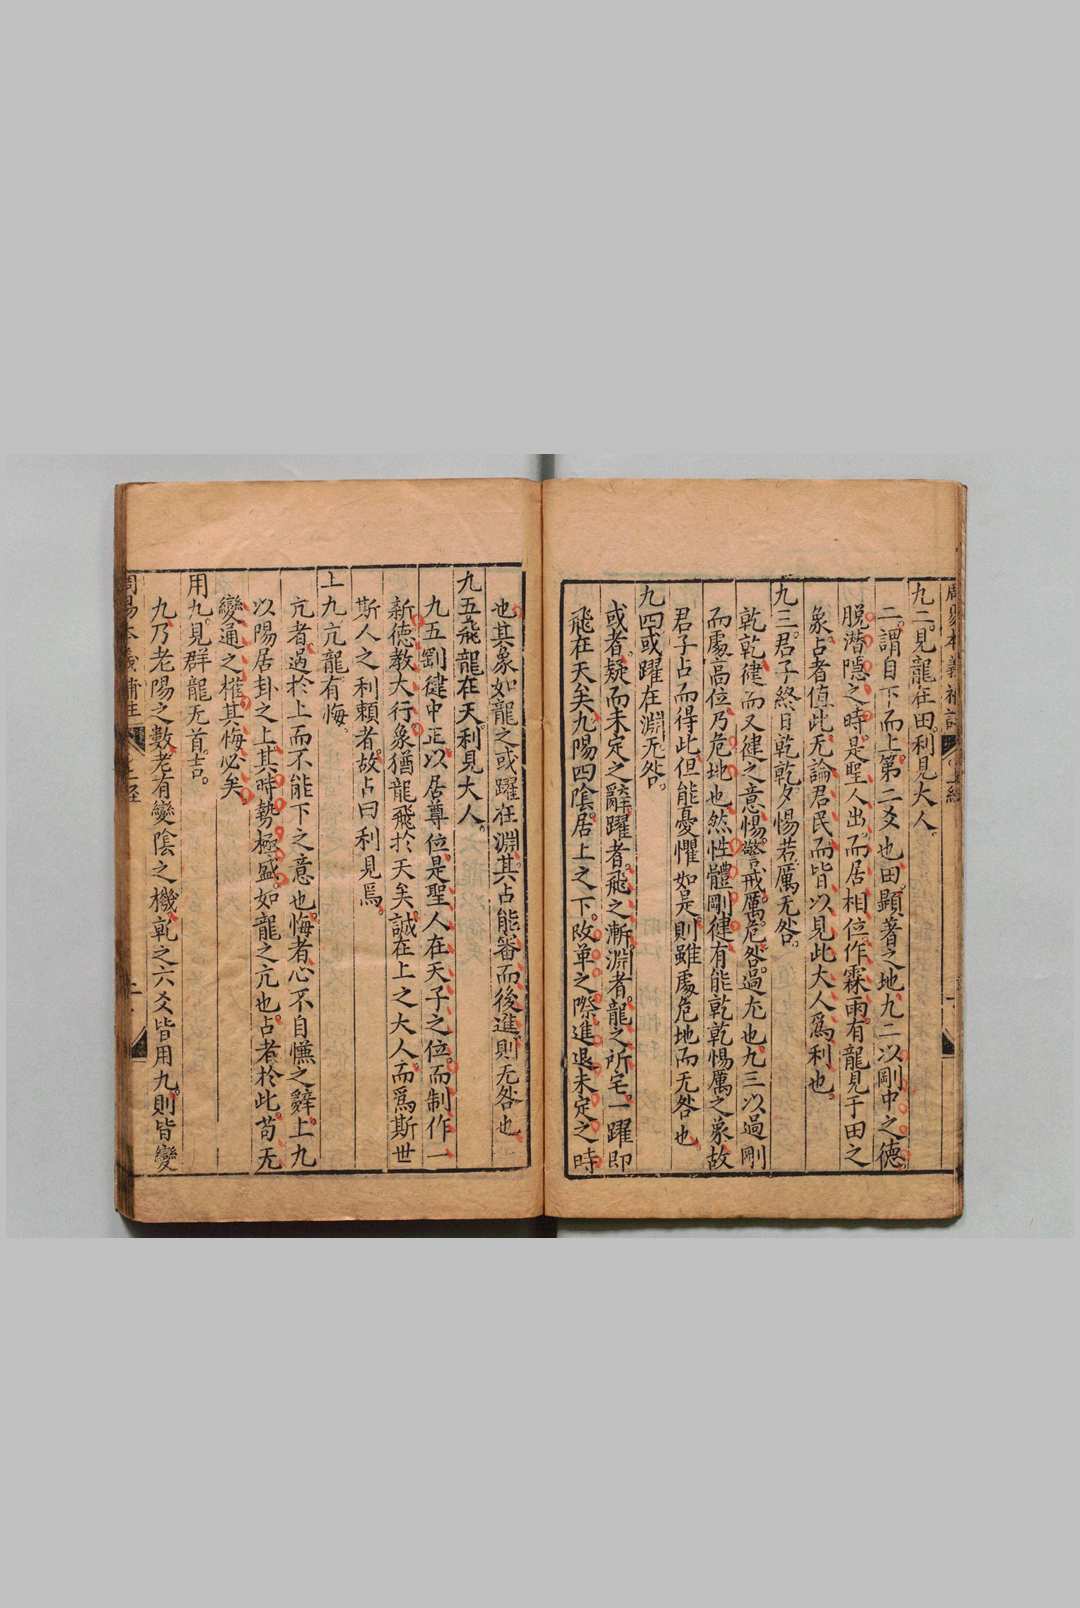 九二。見龍在田。利見大人。
二。謂自下而上。第二爻也。田。顯著之地。九二以剛中之德。
脫潛隱之時。是聖人出。而居相位。作霖雨。有龍見于田之
象。占者值此。无論君民。而皆以見此大人爲利也。
九三。君子終日乾乾。夕惕若厲。无咎。
乾乾。健而又健之意。惕。警戒。厲。危。咎。過尤也。九三以過剛
而處高位。乃危地也。然性體剛健。有能乾乾惕厲之象。故
君子占而得此。但能憂懼如是。則雖處危地。而无咎也。
九四。或躍在淵。无咎。
或者。疑而未定之辭。躍者。飛之漸。淵者。龍之所宅。一躍即
飛在天矣。九陽四陰。居上之下。改革之際。進退未定之時
也。其象如龍之或躍在淵。其占能審而後進。則无咎也。
九五。飛龍在天。利見大人。
九五剛健中正。以居尊位。是聖人在天子之位。而制作一
新。德教大行。象猶龍飛於天矣。誠在上之大人。而爲斯世
斯人之利賴者。故占曰利見焉。
上九。亢龍有悔。
亢者。過於上而不能下之意也。悔者。心不自慊之辭。上九
以陽居卦之上。其時勢極盛。如龍之亢也。占者於此。苟无
變通之權。其悔必矣。
用九。見群龍无首。吉。
九乃老陽之數。老有變陰之機。乾之六爻皆用九。則皆變
周易本義補註 上經 二